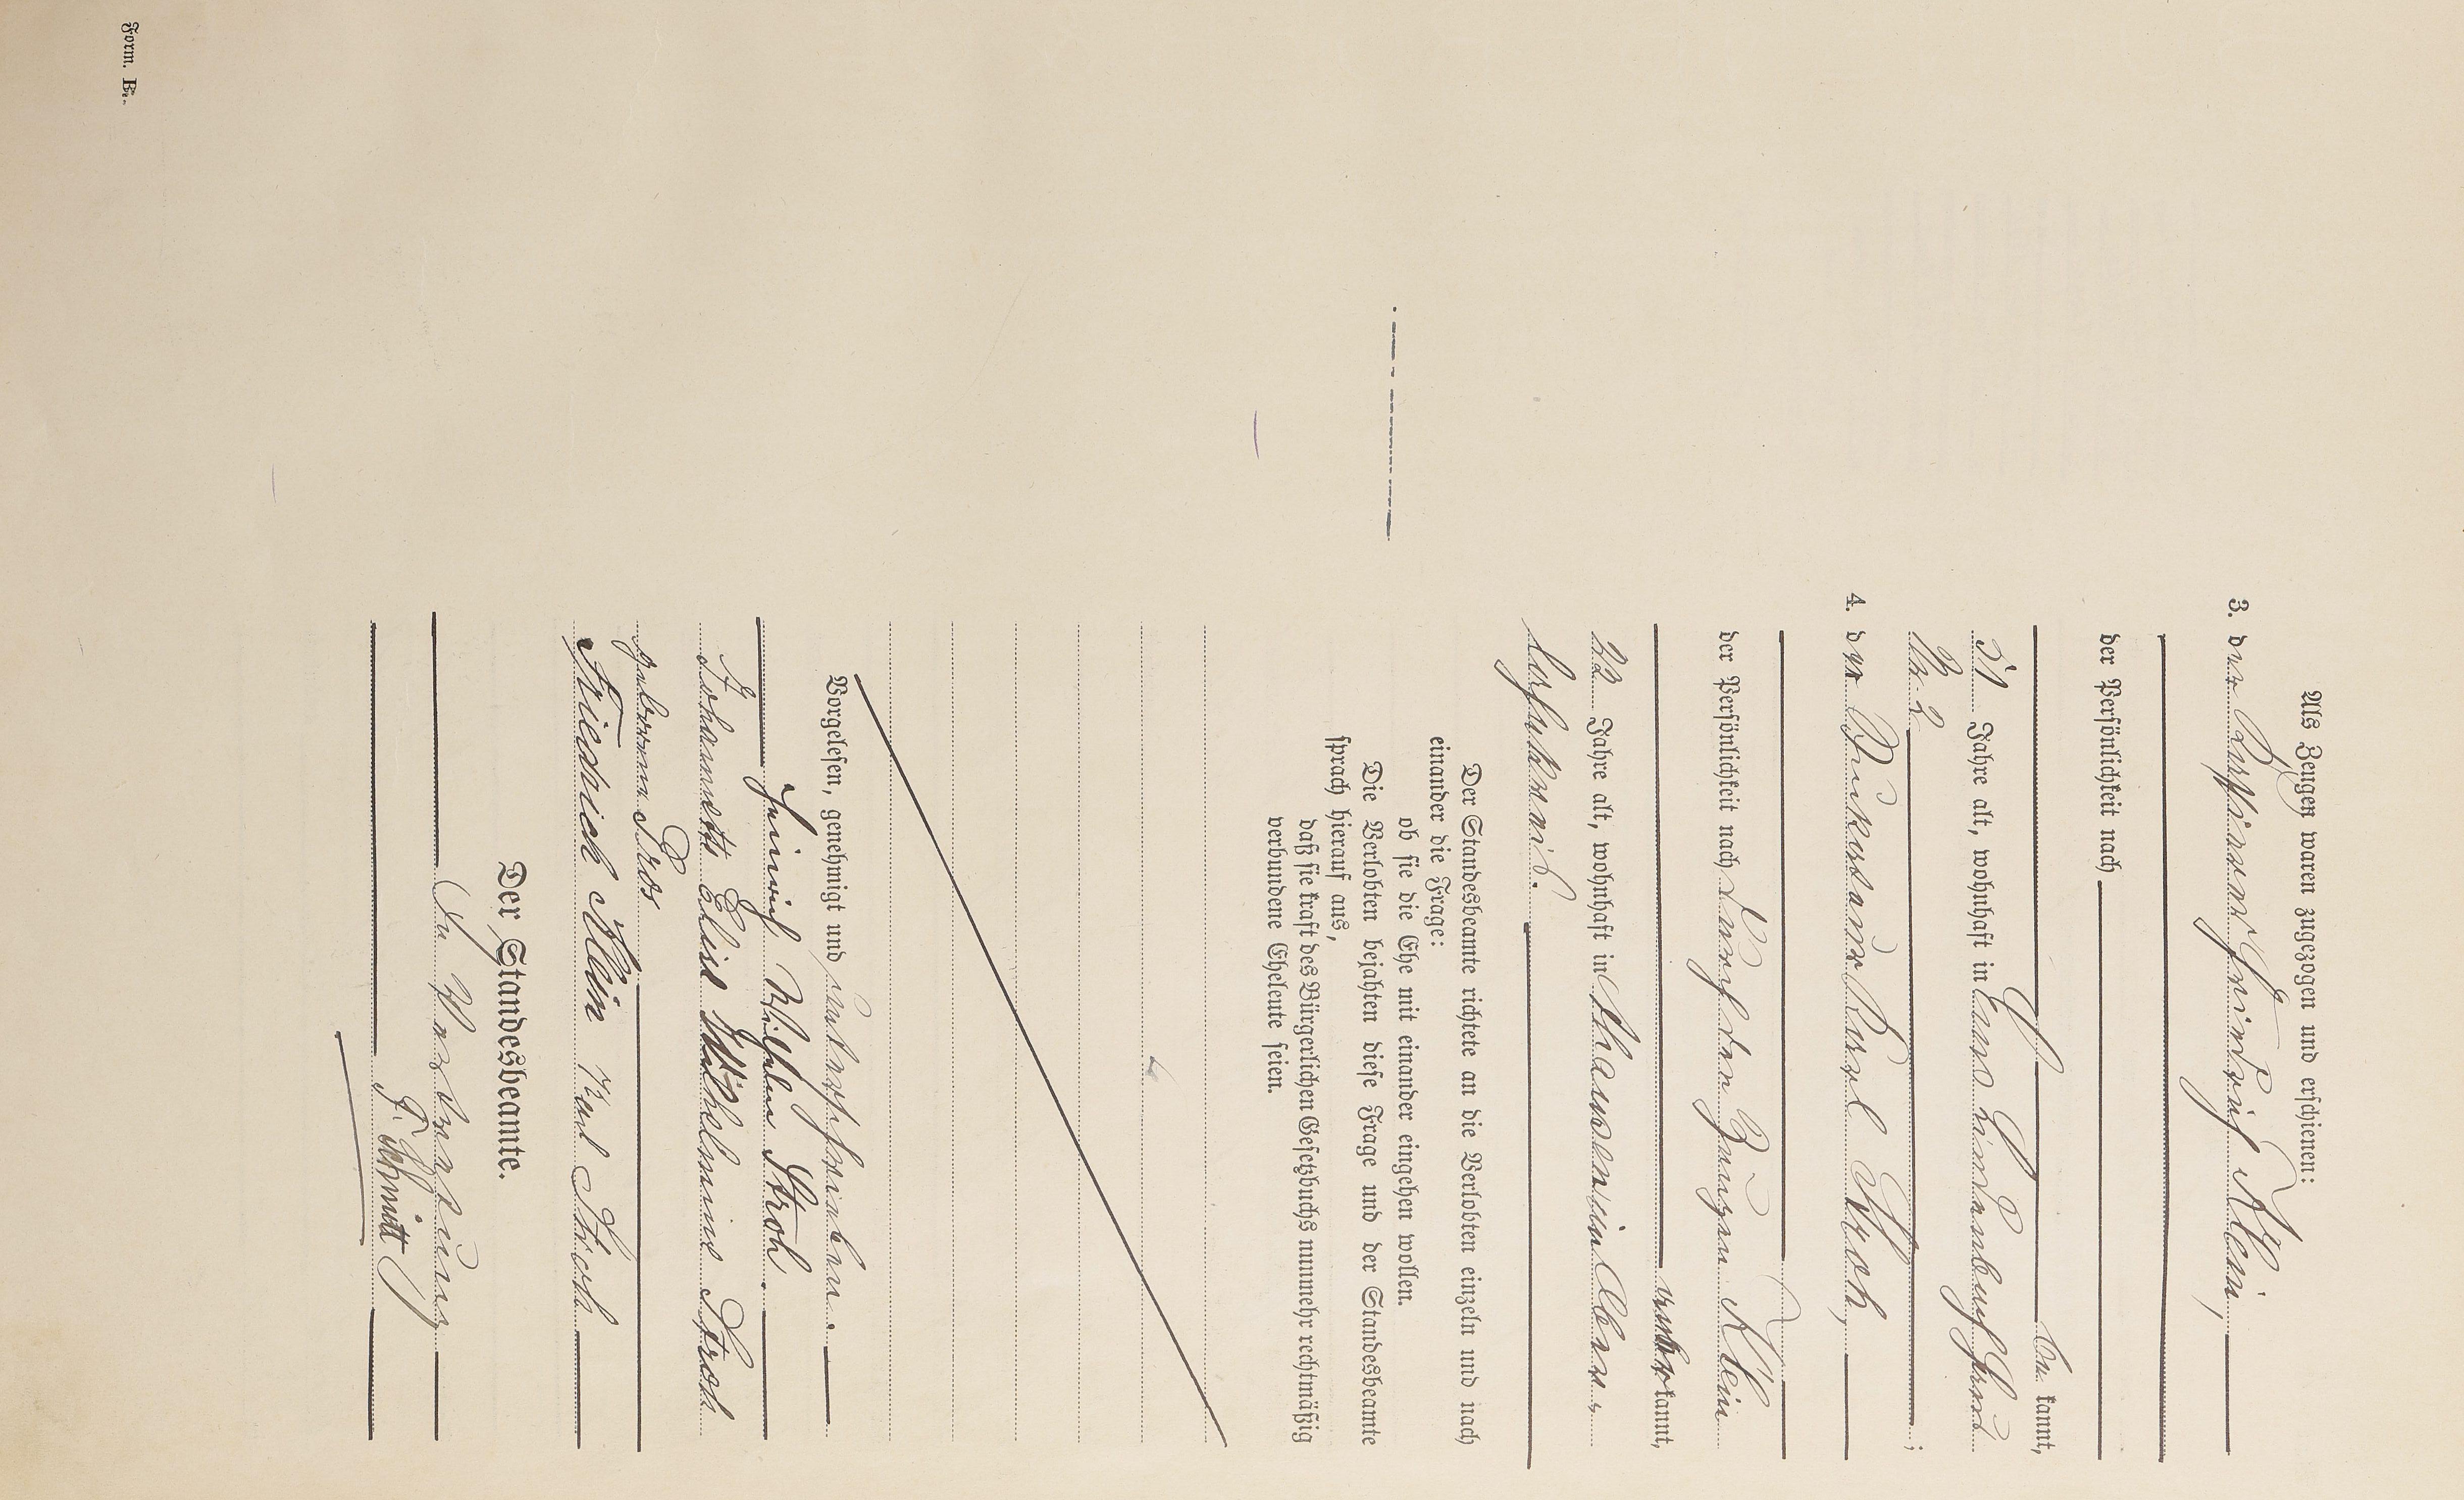 Als Zeugen waren zugezogen und erschienen:
3. der Friedrich Klein,
der Persönlichkeit nach
be kannt,
31 Jahre alt, wohnhaft in
No 2 ;
4. der Karl Stroh,
der Persönlichkeit nach durch den Zeugen Klein
anerkannt,
22 Jahre alt, wohnhaft in
Der Standesbeamte richtete an die Verlobten einzeln und nach
einander die Frage:
ob sie die Ehe mit einander eingehen wollen.
Die Verlobten bejahten diese Frage und der Standesbeamte
sprach hierauf aus,
daß sie kraft des Bürgerlichen Gesetzbuchs nunmehr rechtmäßig
verbundene Eheleute seien.
Vorgelesen, genehmigt und unterschrieben.
Heinrich Wilhelm Stroh.
Johannette Elise Wilhelmine Stroh
geborene
Friedrich Klein Karl Stroh
Der Standesbeamte.
In Vertretung
F. Schmitt
Form. B.